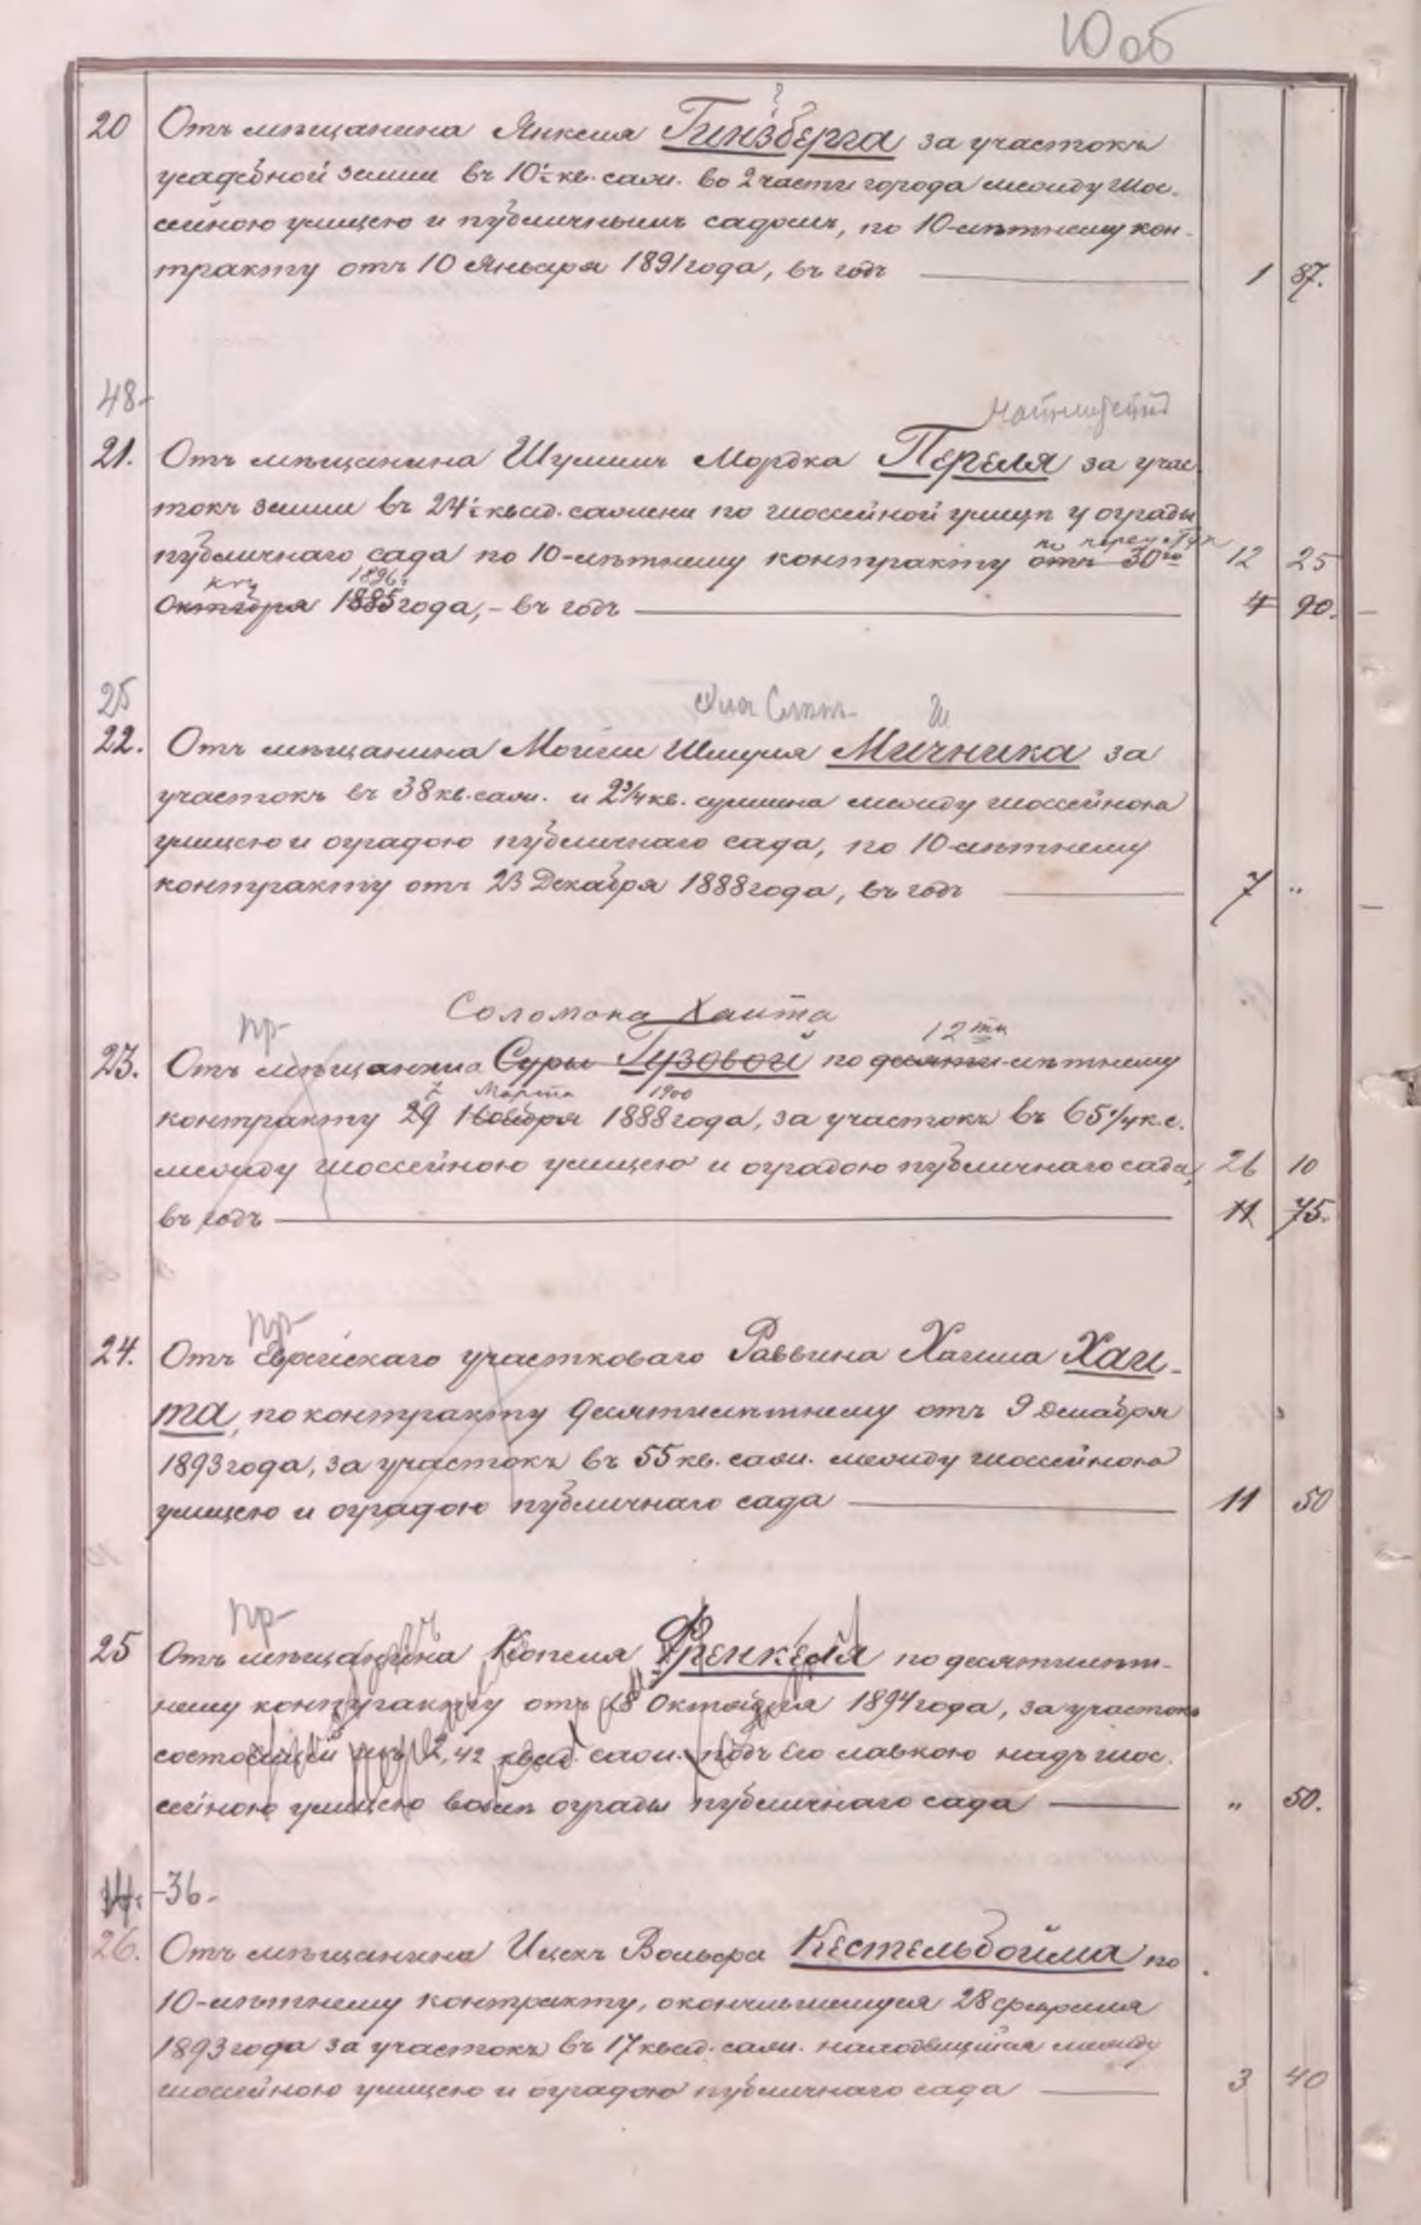 10 об
?
20 Отъ мѣщанина Янкеля Гинзберга за участокъ
усадебной земли въ 10½ кв. саж. во 2 части города между шос-
сейною улицею и публичнымъ садомъ, по 10-лѣтнему кон-
тракту отъ 10 Января 1891 года, въ годъ 1 87.
48-
21. Отъ мѣщанина Шулимъ Мордка Переля за учас-
токъ земли въ 24½ квад. сажени по шоссейной улицѣ у ограды
публичнаго сада по 10-лѣтнему контракту отъ 30го 12 25
1896
Октября 1885 года, - въ годъ 4 90.
25
22. Отъ мѣщанина Мошки Шмуля Мичника за
участокъ въ 38 кв. саж. и 2¾ кв. аршина между шоссейною
улицею и оградою публичнаго сада, по 10-лѣтнему
контракту отъ 23 Декабря 1888 года, въ годъ 7 "
Соломона Хаита
пр- 12ти
23. Отъ мѣщанина Суры Гузовой по десяти-лѣтнему
7 Марта 1900
контракту 29 Ноября 1888 года, за участокъ въ 65¼ к. с.
между шоссейною улицею и оградою публичнаго сада, 26 10
въ годъ 11 75.
пр-
24. Отъ Еврейскаго участковаго Раввина Хаима Хаи-
та, по контракту десятилѣтнему отъ 9 Декабря
1893 года, за участокъ въ 55 кв. саж. между шоссейною
улицею и оградою публичнаго сада 11 50
пр-
25 Отъ мѣщанина Копеля Френкеля по десятилѣт-
нему контракту отъ 18 Октября 1894 года, за участокъ
состоящій изъ 2,42 квад. саж. подъ его лавкою надъ шос-
сейною улицею возлѣ ограды публичнаго сада " 50.
14. -36-
26. Отъ мѣщанина Ицекъ Вольфа Кестельбойма по
10-лѣтнему контракту, окончившемуся 28 февраля
1893 года за участокъ въ 17 квад. саж. находящійся между
шоссейною улицею и оградою публичнаго сада 3 40